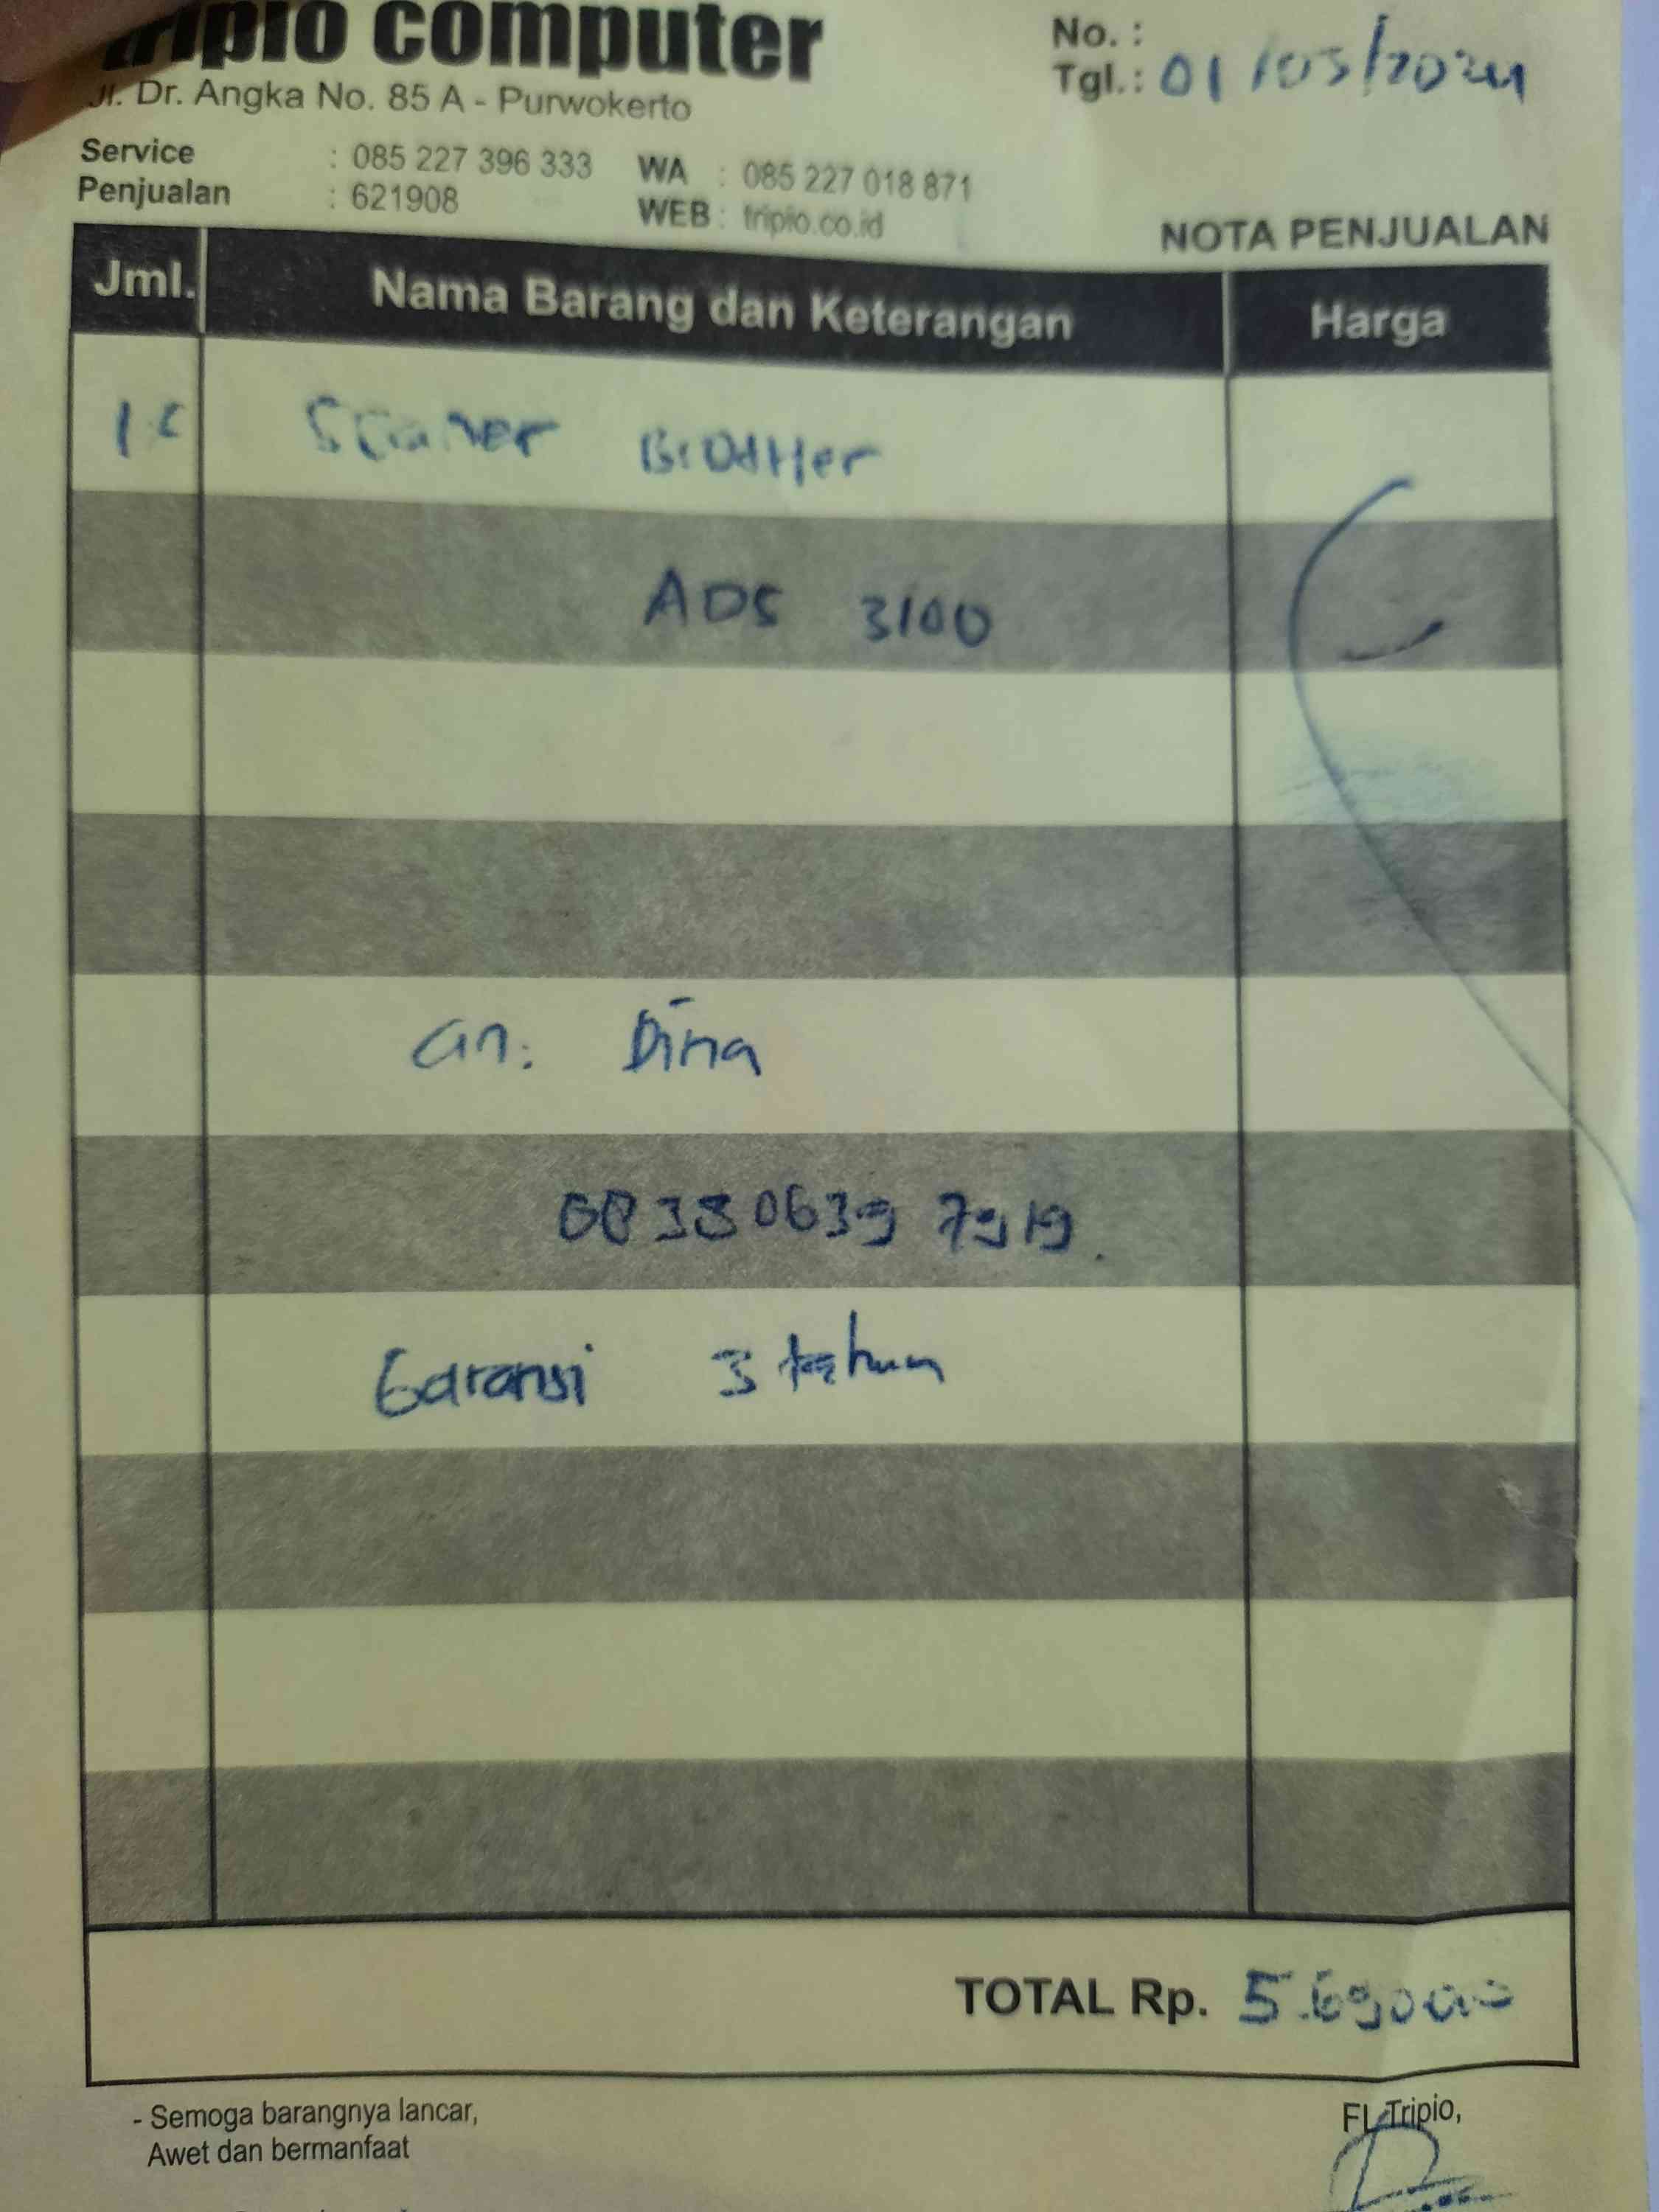 tripio computer
Jl. Dr. Angka No. 85 A - Purwokerto
No. :
Tgl. : 01/03/2024
Service : 085 227 396 333 WA : 085 227 018 871
Penjualan : 621908 WEB : tripio.co.id
NOTA PENJUALAN
Jml. Nama Barang dan Keterangan Harga
Scanner Brother
ADS 3100
an. Dina
Garansi 3 tahun
TOTAL Rp. 5.690000
- Semoga barangnya lancar,
Awet dan bermanfaat
FL Tripio,